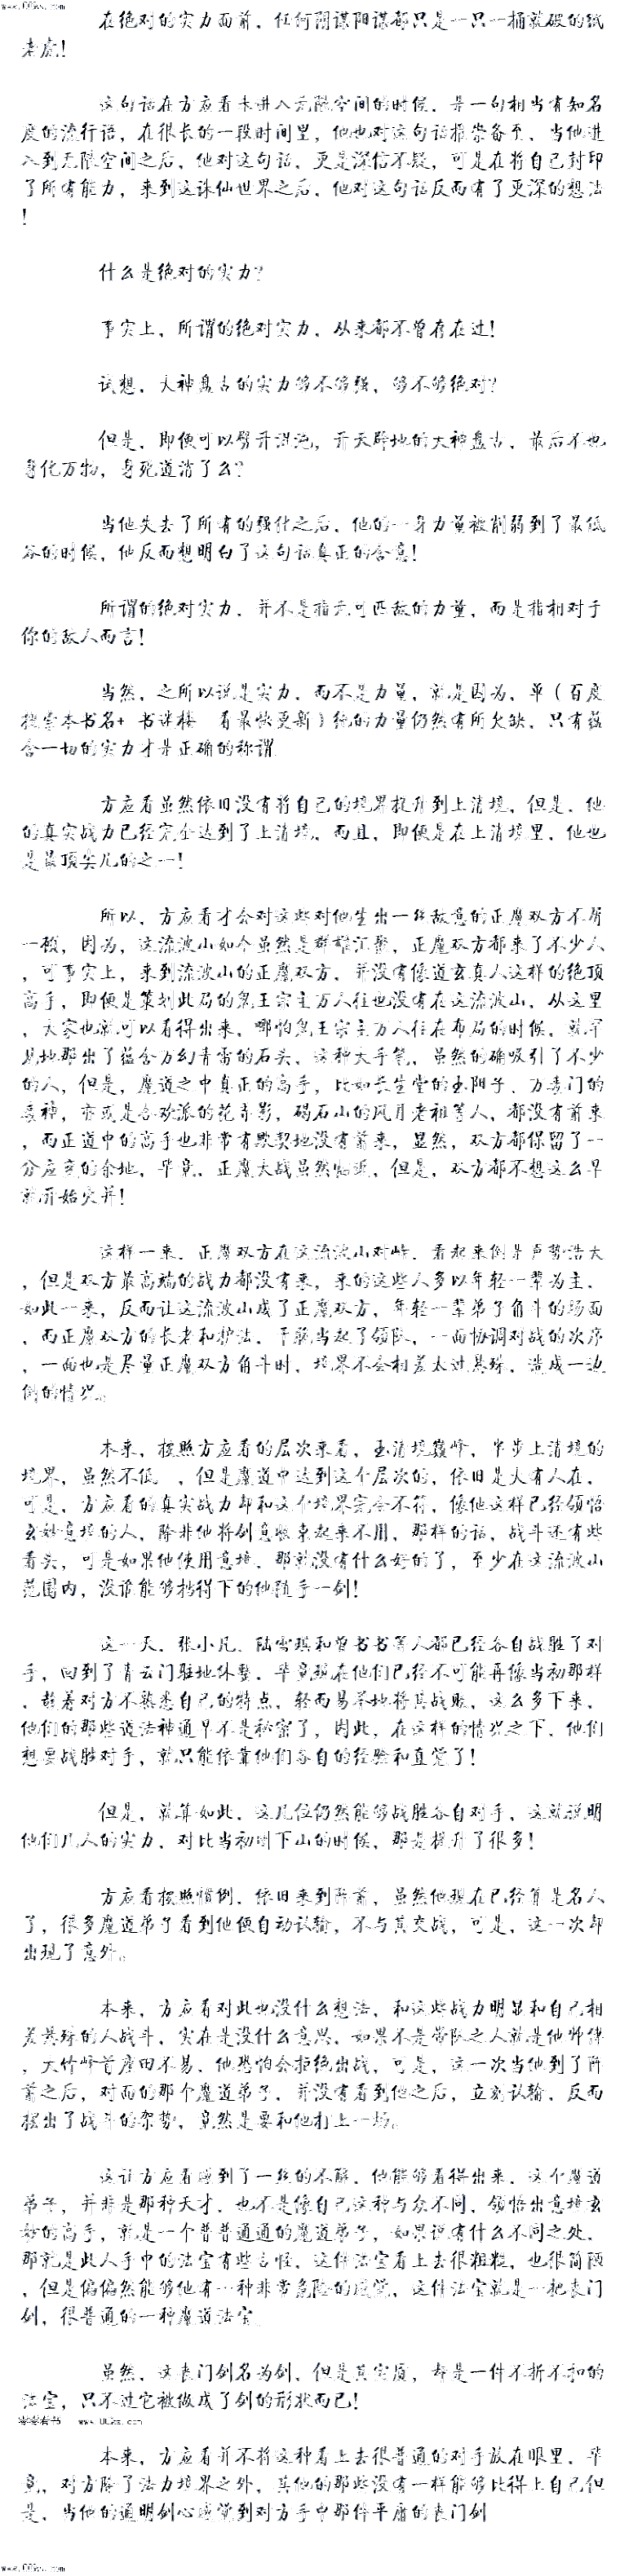 www.00ks.com
在绝对的实力面前，任何阴谋阳谋都只是一只一捅就破的纸
老虎！
这句话在方应看未进入无限空间的时候，是一句相当有知名
度的流行语，在很长的一段时间里，他也对这句话推崇备至，当他进
入到无限空间之后，他对这句话，更是深信不疑，可是在将自己封印
了所有能力，来到这诛仙世界之后，他对这句话反而有了更深的想法
！
什么是绝对的实力？
事实上，所谓的绝对实力，从来都不曾存在过！
试想，大神盘古的实力够不够强，够不够绝对？
但是，即便可以劈开混沌，开天辟地的大神盘古，最后不也
身化万物，身死道消了么？
当他失去了所有的强化之后，他的一身力量被削弱到了最低
谷的时候，他反而想明白了这句话真正的含意！
所谓的绝对实力，并不是指无可匹敌的力量，而是指相对于
你的敌人而言！
当然，之所以说是实力，而不是力量，就是因为，单（百度
搜索本书名+ 书迷楼 看最快更新）纯的力量仍然有所欠缺，只有蕴
含一切的实力才是正确的称谓
方应看虽然依旧没有将自己的境界提升到上清境，但是，他
的真实战力已经完全达到了上清境，而且，即便是在上清境里，他也
是最顶尖儿的之一！
所以，方应看才会对这些对他生出一丝敌意的正魔双方不屑
一顾，因为，这流波山如今虽然是群雄汇聚，正魔双方都来了不少人
，可事实上，来到流波山的正魔双方，并没有像道玄真人这样的绝顶
高手，即便是策划此局的鬼王宗主万人往也没有在这流波山，从这里
，大家也就可以看得出来，哪怕鬼王宗主万人往在布局的时候，就罕
见地那出了蕴含万幻青雷的石头，这种大手笔，虽然的确吸引了不少
的人，但是，魔道之中真正的高手，比如长生堂的玉阳子、万毒门的
毒神，亦或是合欢派的花弄影，碣石山的风月老祖等人，都没有前来
，而正道中的高手也非常有默契地没有前来，显然，双方都保留了一
分应变的余地，毕竟，正魔大战虽然临近，但是，双方都不想这么早
就开始火并！
这样一来，正魔双方在这流波山对峙，看起来倒是声势浩大
，但是双方最高端的战力都没有来，来的这些人多以年轻一辈为主，
如此一来，反而让这流波山成了正魔双方，年轻一辈弟子角斗的场面
，而正魔双方的长老和护法，干脆当起了领队，一面协调对战的次序
，一面也是尽量正魔双方角斗时，境界不会相差太过悬殊，造成一边
倒的情况。
本来，按照方应看的层次来看，玉清境巅峰，半步上清境的
境界，虽然不低 ，但是魔道中达到这个层次的，依旧是大有人在，
可是，方应看的真实战力却和这个境界完全不符，像他这样已经领悟
玄妙意境的人，除非他将剑意收束起来不用，那样的话，战斗还有些
看头，可是如果他使用意境，那就没有什么好的了，至少在这流波山
范围内，没谁能够挡得下的他随手一剑！
这一天，张小凡、陆雪琪和曾书书等人都已经各自战胜了对
手，回到了青云门驻地休整，毕竟现在他们已经不可能再像当初那样
，趁着对方不熟悉自己的特点，轻而易举地将其战败，这么多下来，
他们的那些道法神通早不是秘密了，因此，在这样的情况之下，他们
想要战胜对手，就只能依靠他们各自的经验和直觉了！
但是，就算如此，这几位仍然能够战胜各自对手，这就说明
他们几人的实力，对比当初刚下山的时候，那是提升了很多！
方应看按照惯例，依旧来到阵前，虽然他现在已经算是名人
了，很多魔道弟子看到他便自动认输，不与其交战，可是，这一次却
出现了意外。
本来，方应看对此也没什么想法，和这些战力明显和自己相
差悬殊的人战斗，实在是没什么意思，如果不是带队之人就是他师傅
，大竹峰首座田不易，他恐怕会拒绝出战，可是，这一次当他到了阵
前之后，对面的那个魔道弟子，并没有看到他之后，立刻认输，反而
摆出了战斗的架势，竟然是要和他打上一场。
这让方应看感到了一丝的不解，他能够看得出来，这个魔道
弟子，并非是那种天才，也不是像自己这种与众不同，领悟出意境玄
妙的高手，就是一个普普通通的魔道弟子，如果说有什么不同之处，
那就是此人手中的法宝有些古怪，这件法宝看上去很粗糙，也很简陋
，但是偏偏然能够他有一种非常危险的感觉，这件法宝就是一把丧门
剑，很普通的一种魔道法宝
虽然，这丧门剑名为剑，但是其实质，却是一件不折不扣的
法宝，只不过它被做成了剑的形状而已！
零零看书 www.00ks.com
本来，方应看并不将这种看上去很普通的对手放在眼里，毕
竟，对方除了法力境界之外，其他的那些没有一样能够比得上自己但
是，当他的通明剑心感觉到对方手中那件平庸的丧门剑
www.00ks.com